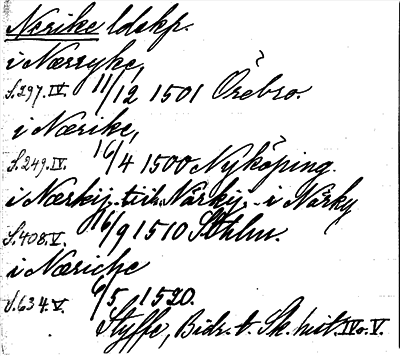 Nærike ldskp.
i Nærryke,
S.297.IV. 11/12 1501 Örebro.
i Nærike,
S.249.IV. 16/4 1500 Nyköping.
i Nærkij - tiil Närkij - i Närky
S.408.V. 16/9 1510 Sthlm.
i Næriche
S.634.V. 6/5 1520.
Styffe, Bidr. t. Sk. hist. IV o. V.